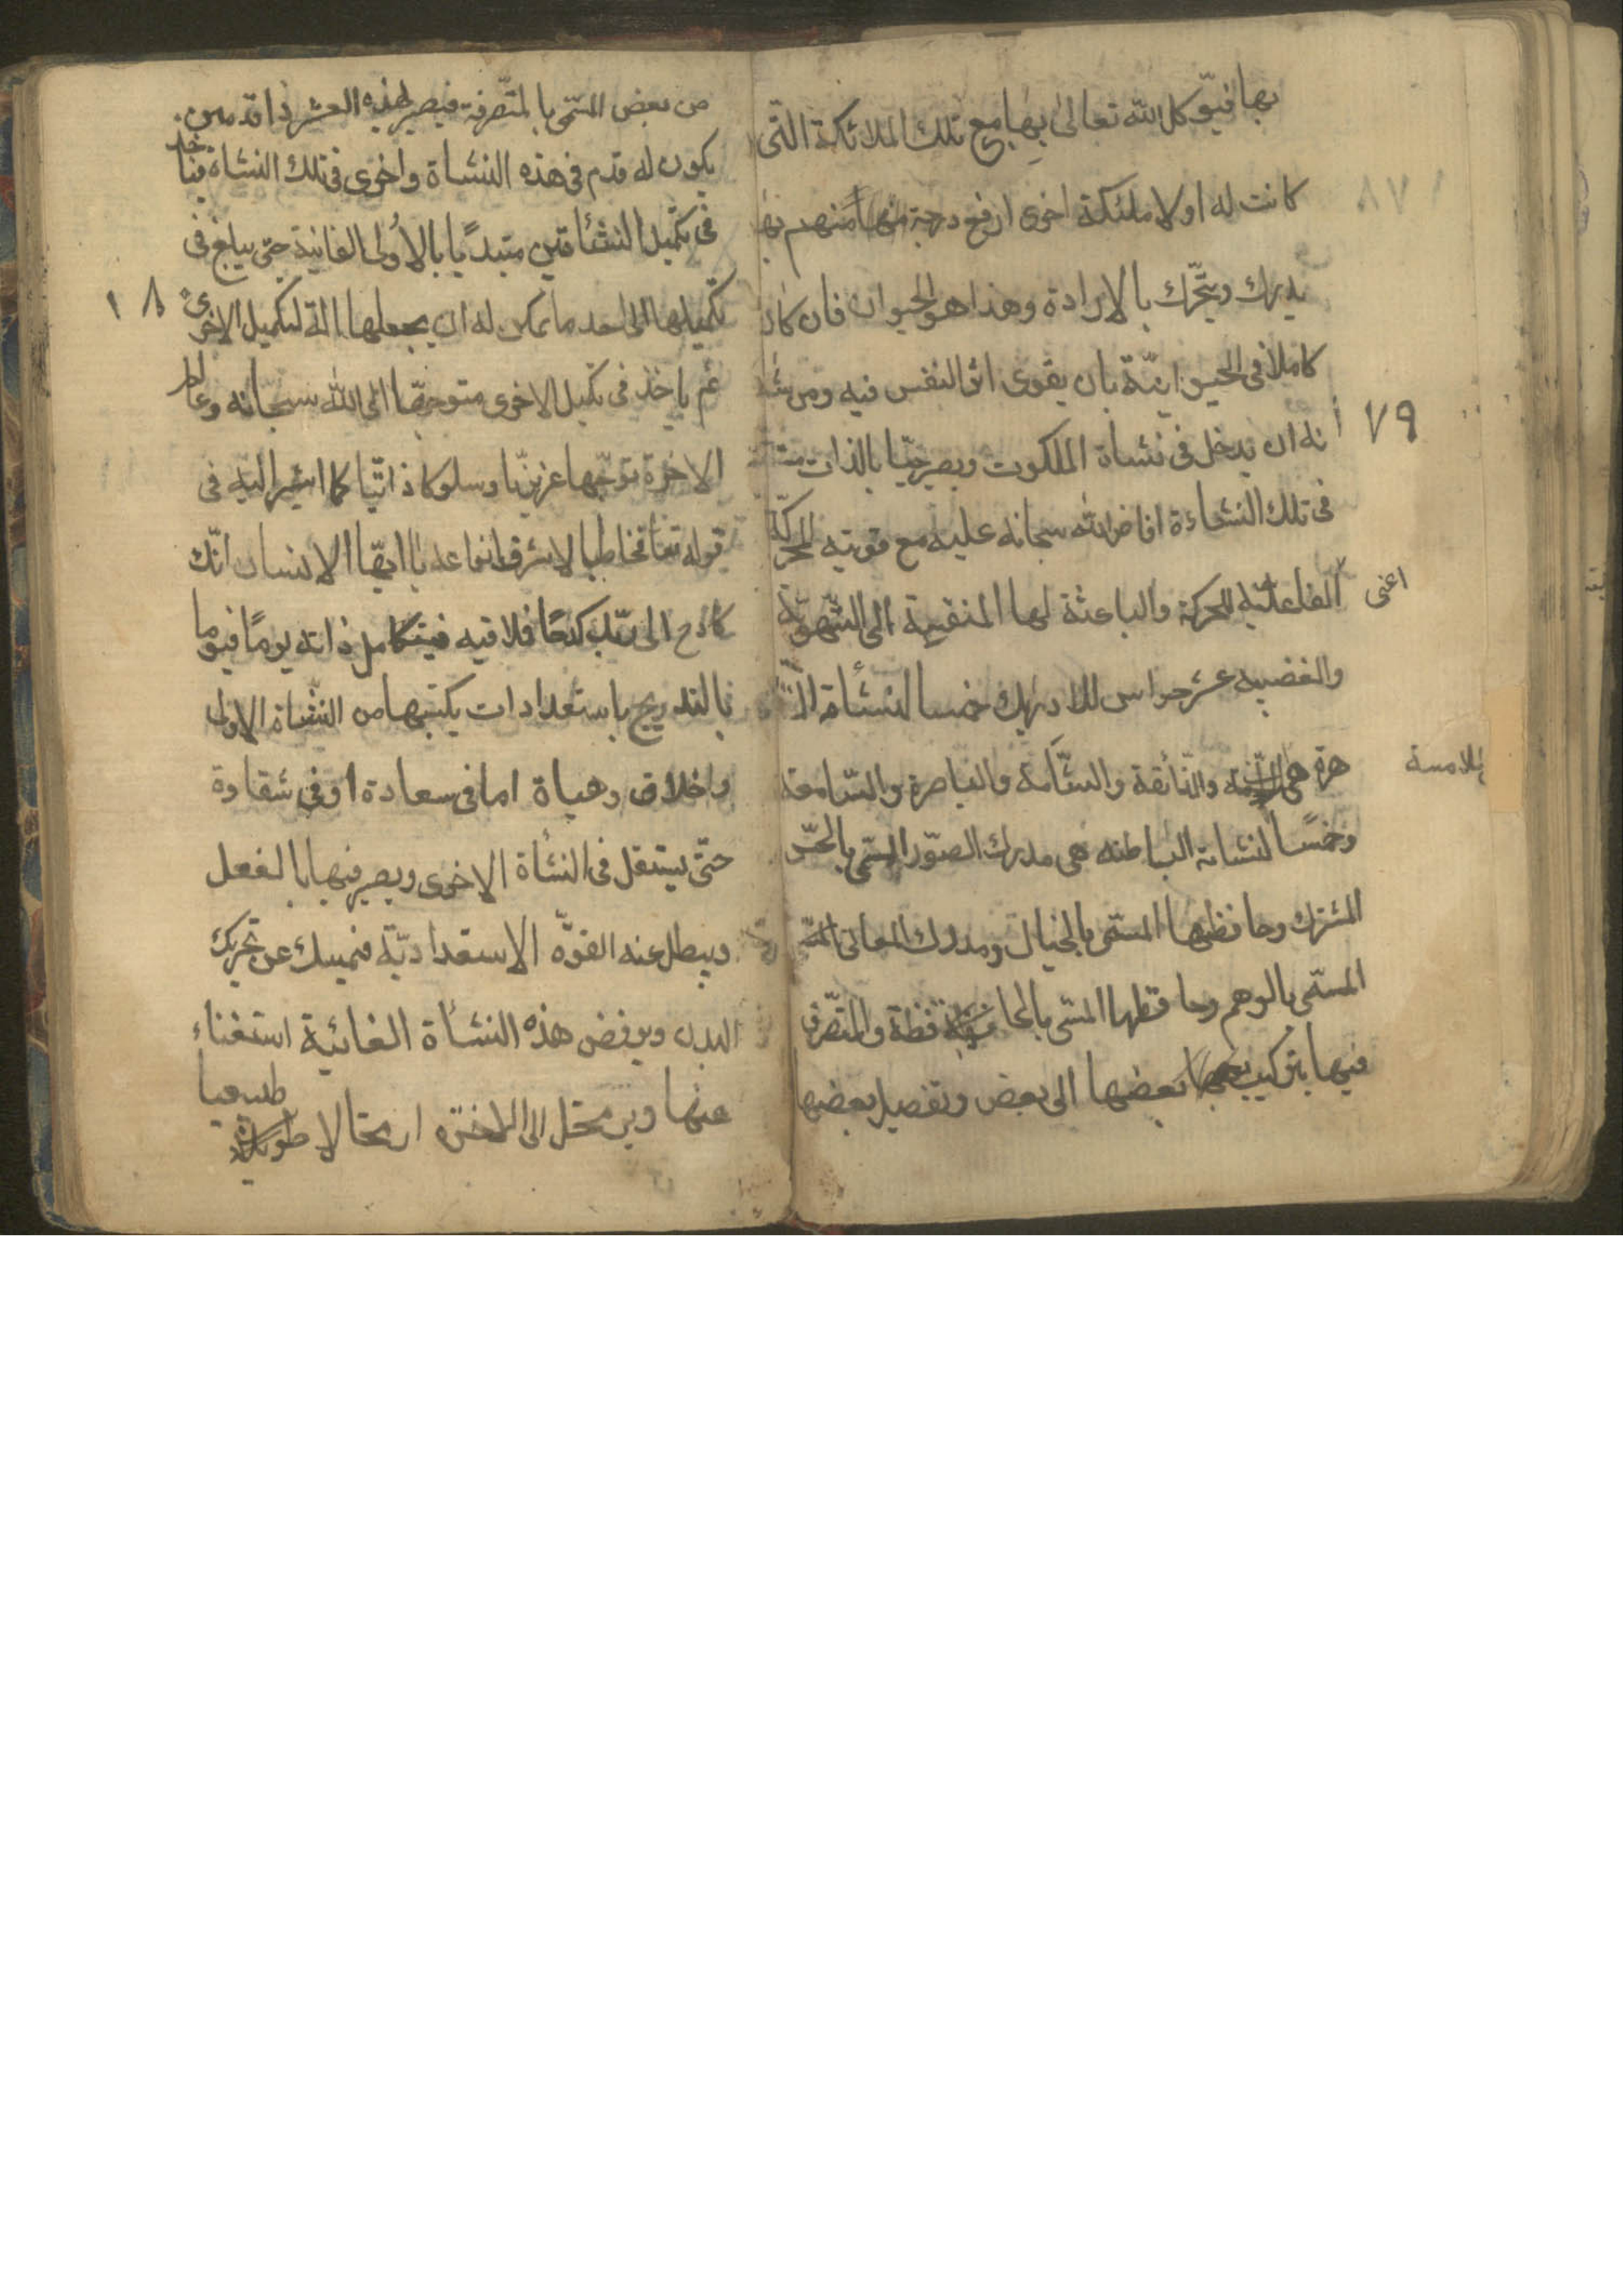 بها فيوكل الله تعالى بها مع تلك الملائكة التى
كانت له اولا ملئكة اخرى ارفع درجة منهم بها
يدرك ويتحّرك بالارادة وهذا هو الحيوان فان كان
كاملا فى الحيوانيّة بان يقوى اثر النفس فيه ومن شا
٧٩
نه ان يدخل فى نشاة الملكوت ويصير حيّا بالذات
فى تلك النشاءة افاض الله سبحانه عليه مع قوتيه المحركّة
اعنى
الفاعليّه للحركة والباعثة لها المنقسمة الى الشّهويّة
والغضبيه عشر حواس للادراك خمسا لنشأة الظا
هرة هى والذّائقة والشّامة والباصرة والسّامعة
للامسة
وخمسًا لنشاته الباطنه هى مدرك الصّور المسّمى بالحسّ
المشترك وحافظها المسّمى بالخيال ومدرك المعانى
المسّمى بالوهم وحافظها المسّمى بالحافظة والمتّصرف
فيها بتركيب بعضها الى بعض وتفصيل بعضها
من بعض المسّمى بالمتّصرفة فيصير لهذه العشر ذا قدمين
يكون له قدم فى هذه النشاة واخرى فى تلك النشاة فياخذ
فى تكميل النشأتين مبتديًا بالاولى الفانية حتى يبلغ فى
تكميلها الى احد ما يمكن له ان يجعلها الة لتكميل الاخرى
١٨
ثم ياخذ فى تكميل الاخرى متوجّها الى الله سبحانه وعالم
الاخرة توجّها غريزيّا وسلوكا ذاتيّا كما اشير اليه فى
قوله تعا مخاطبا لاشرف انواعه يا ايّها الانسان انّك
كادح الى ربّك كدحًا فلاقيه فيتكامل ذاته يومًا فيوما
بالتدريج باستعدادات يكتسبها من النشاة الاولى
واخلاق وهياة اما فى سعادة او فى شقاوة
حتّى ينتقل فى النشأة الاخرى ويصير فيها بالفعل
ويبطل عنه القوّه الاستعداديّة فيمسك عن تحريك
البدن ويرفض هذه النشأة الفانية استغناء
عنها ويرتحل الى الاخرة ارتحالا طبيعيا